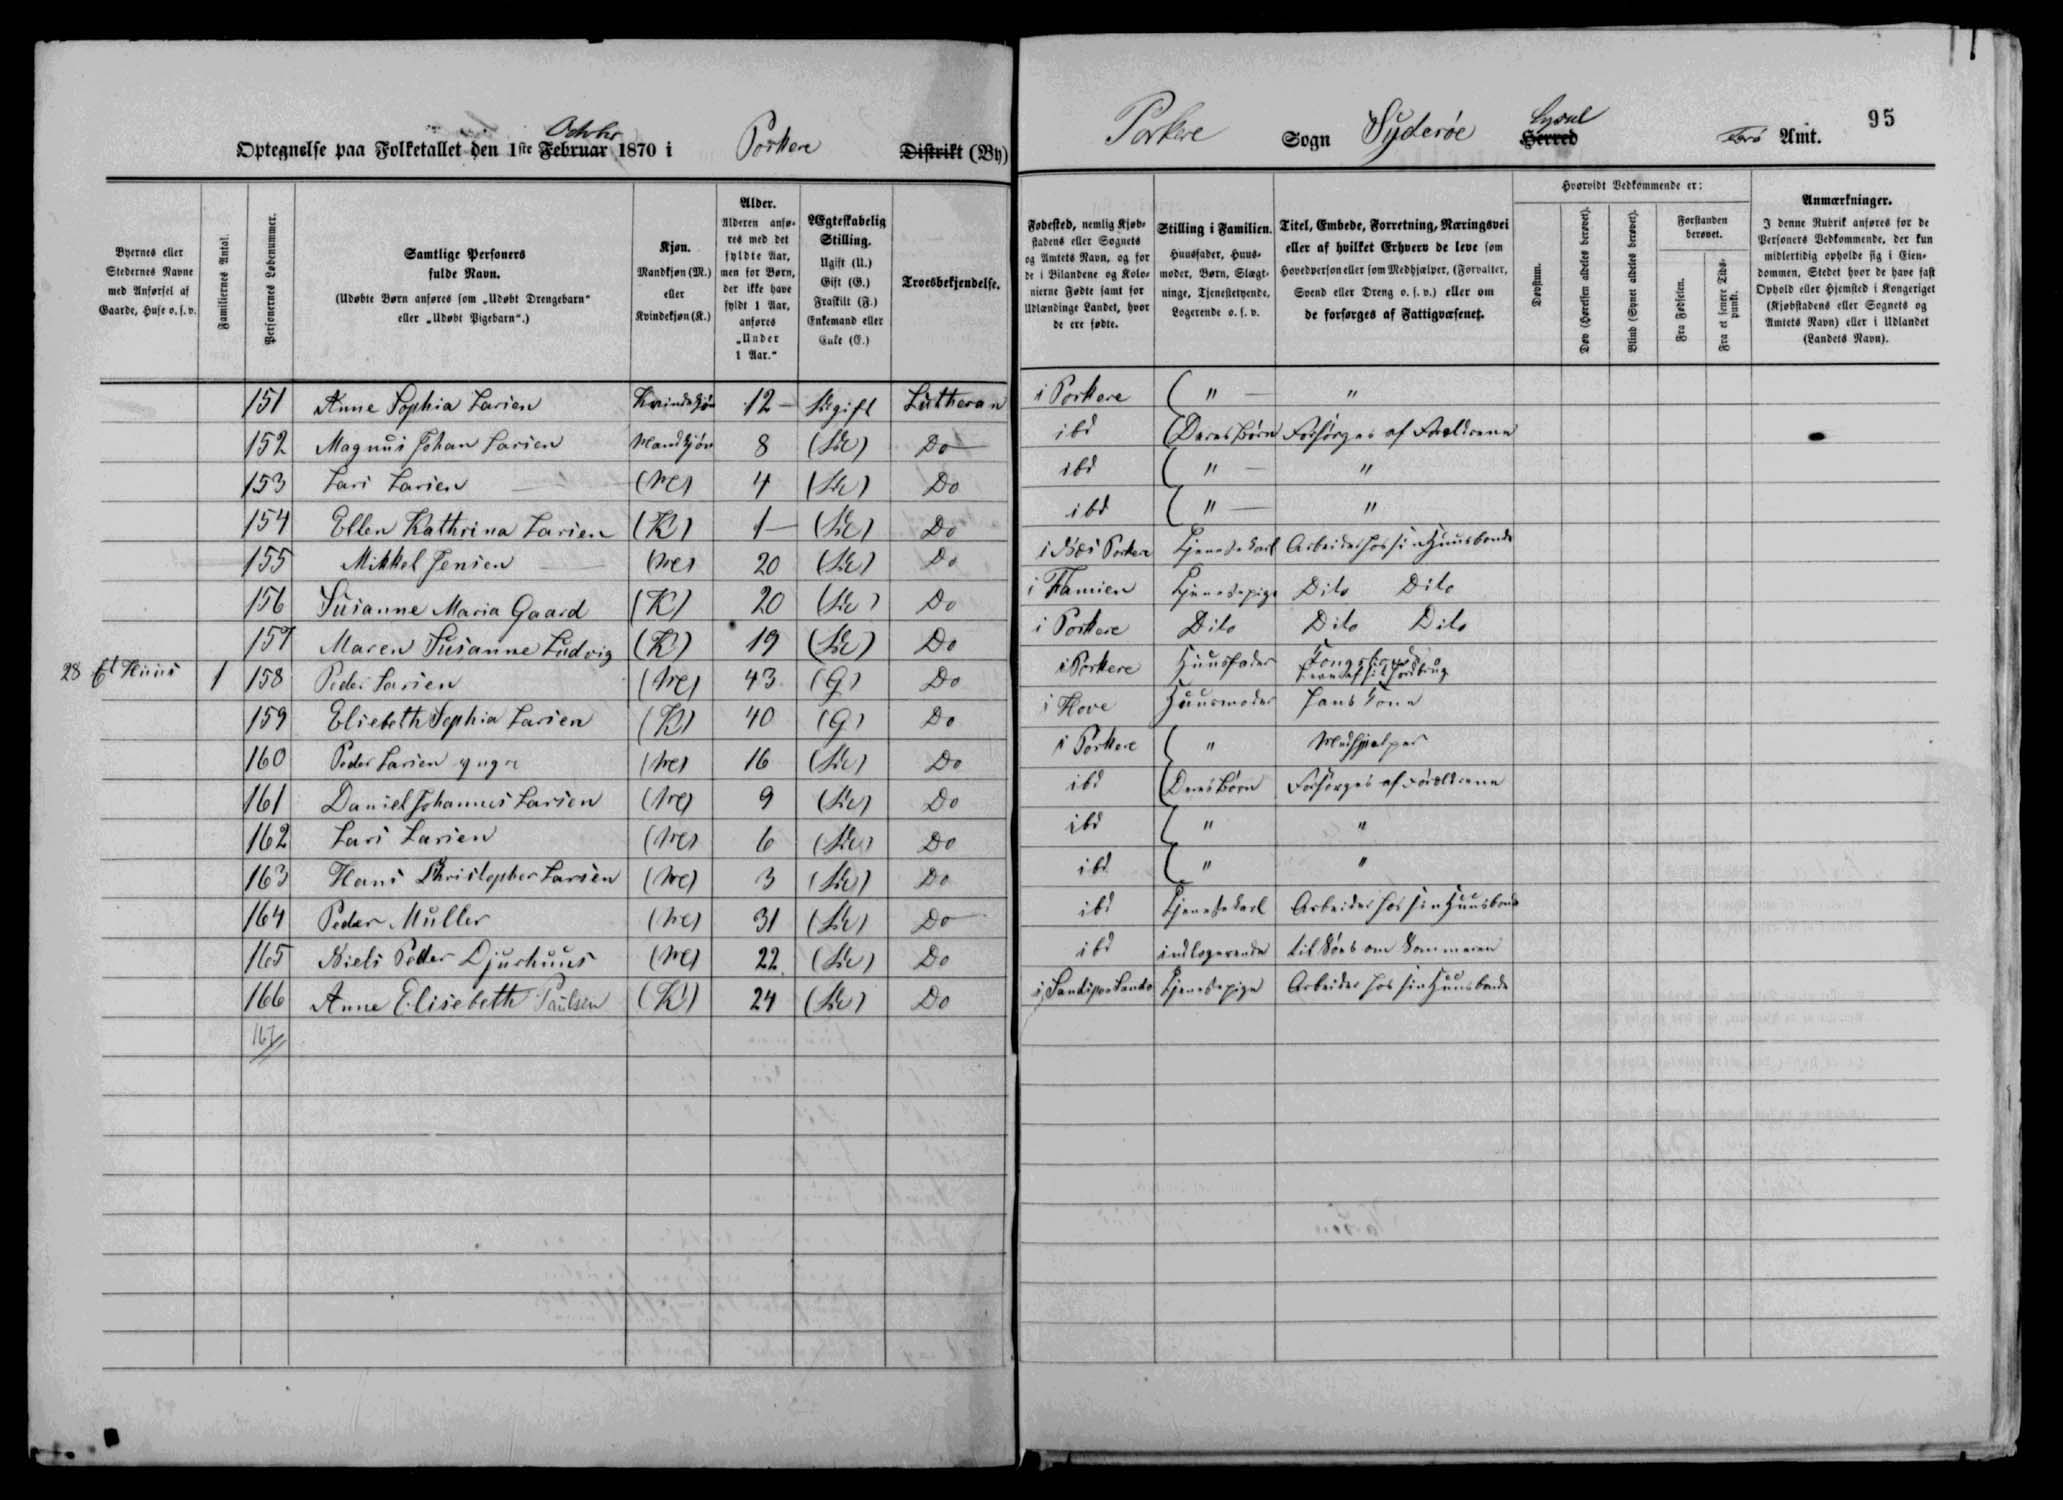 Optegnelse paa Folketallet den 1ste Februar October 1870 i Porkere Distrikt (By)
Porkere Sogn Syderøe Herred Syssel Færø Amt.
95
Byernes eller Stedernes Navne med Anførsel af Gaarde, Huse o. s. v.
Familiernes Antal.
Personernes Løbenummer.
Samtlige Personers fulde Navn.
(Udøbte Børn anføres som „Udøbt Drengebarn“ eller „Udøbt Pigebarn“.)
Kjøn.
Mandkjøn (M.) eller Kvindekjøn (K.)
Alder.
Alderen anføres med det fyldte Aar, men for Børn, der ikke have fyldt 1 Aar, anføres „Under 1 Aar.“
Ægteskabelig Stilling.
Ugift (U.) Gift (G.) Fraskilt (F.) Enkemand eller Enke (E.)
Troesbekjendelse.
Fødested, nemlig Kjøbstadens eller Sognets og Amtets Navn, og for de i Bilandene og Kolonierne Fødte samt for Udlændinge Landet, hvor de ere fødte.
Stilling i Familien.
Huusfader, Huusmoder, Børn, Slægtninge, Tjenestetyende, Logerende o. s. v.
Titel, Embede, Forretning, Næringsvei eller af hvilket Erhverv de leve som Hovedperson eller som Medhjælper, (Forvalter, Svend eller Dreng o. s. v.) eller om de forsørges af Fattigvæsenet.
Hvorvidt Vedkommende er:
Døvstum.
Døv (Hørelsen aldeles berøvet).
Blind (Synet aldeles berøvet).
Forstanden berøvet.
Fra Fødselen.
Fra et senere Tidspunkt.
Anmærkninger.
I denne Rubrik anføres for de Personers Vedkommende, der kun midlertidig opholde sig i Eiendommen, Stedet hvor de have fast Ophold eller Hjemsted i Kongeriget (Kjøbstadens eller Sognets og Amtets Navn) eller i Udlandet (Landets Navn).
151 Anne Sophia Larsen Kvindekjøn 12 Ugift Lutheran i Porkere " "
152 Magnus Johan Larsen Mandkjøn 8 (U) Do ibd Deres Børn Forsørges af Forældrene
153 Lars Larsen (M) 4 (U) Do ibd " "
154 Ellen Kathrina Larsen (K) 1 (U) Do ibd " "
155 Mikkel Jensen (M) 20 (U) Do i Næs Porkere Tjenestekarl Arbeider hos sin Huusbonde
156 Susanne Maria Gaard (K) 20 (U) Do i Famien Tjenestepige Dito Dito
157 Maren Susanne Ludvig (K) 19 (U) Do i Porkere Dito Dito Dito
28 Et Huus 1 158 Peder Larsen (M) 43 (G) Do i Porkere Huusfader Kongsbonde lever af sit Jordbrug
159 Elisebeth Sophia Larsen (K) 40 (G) Do i Hove Huusmoder Hans Kone
160 Peder Larsen yngre (M) 16 (U) Do i Porkere " Medhjælper
161 Daniel Johannes Larsen (M) 9 (U) Do ibd Deres Børn Forsørges af Forældrene
162 Lars Larsen (M) 6 (U) Do ibd " "
163 Hans Christopher Larsen (M) 3 (U) Do ibd " "
164 Peder Müller (M) 31 (U) Do ibd Tjenestekarl Arbeider hos sin Huusbonde
165 Niels Peder Djurhuus (M) 22 (U) Do ibd indlogerende til Søes om Sommeren
166 Anne Elisebeth Paulsen (K) 24 (U) Do i Tjenestepige Arbeider hos sin Huusbonde
167